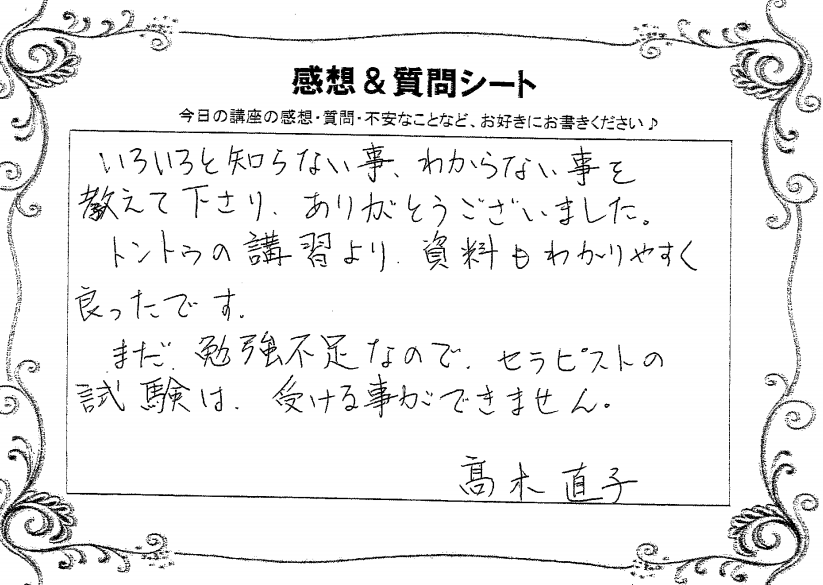 感想＆質問シート
今日の講座の感想・質問・不安なことなど、お好きにお書きください♪
いろいろと知らない事、わからない事を
教えて下さり、ありがとうございました。
トントゥの講習より、資料もわかりやすく
良ったです。
まだ、勉強不足なので、セラピストの
試験は、受ける事ができません。
髙木 直子